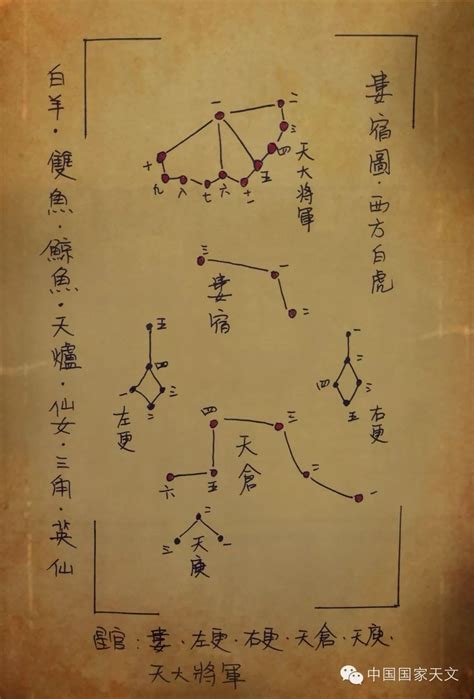 婁宿圖·西方白虎
白羊·雙魚·鯨魚·天爐·仙女·三角·英仙
一
二
三
四
五
十一
六
七
八
九
十
天大將軍
三
一
二
婁宿
五
四
一
三
二
左更
一
二
四
三
五
右更
四
三
二
一
六
五
天倉
二
三
一
天庾
星官：婁·左更·右更·天倉·天庾·
天大將軍
中国国家天文